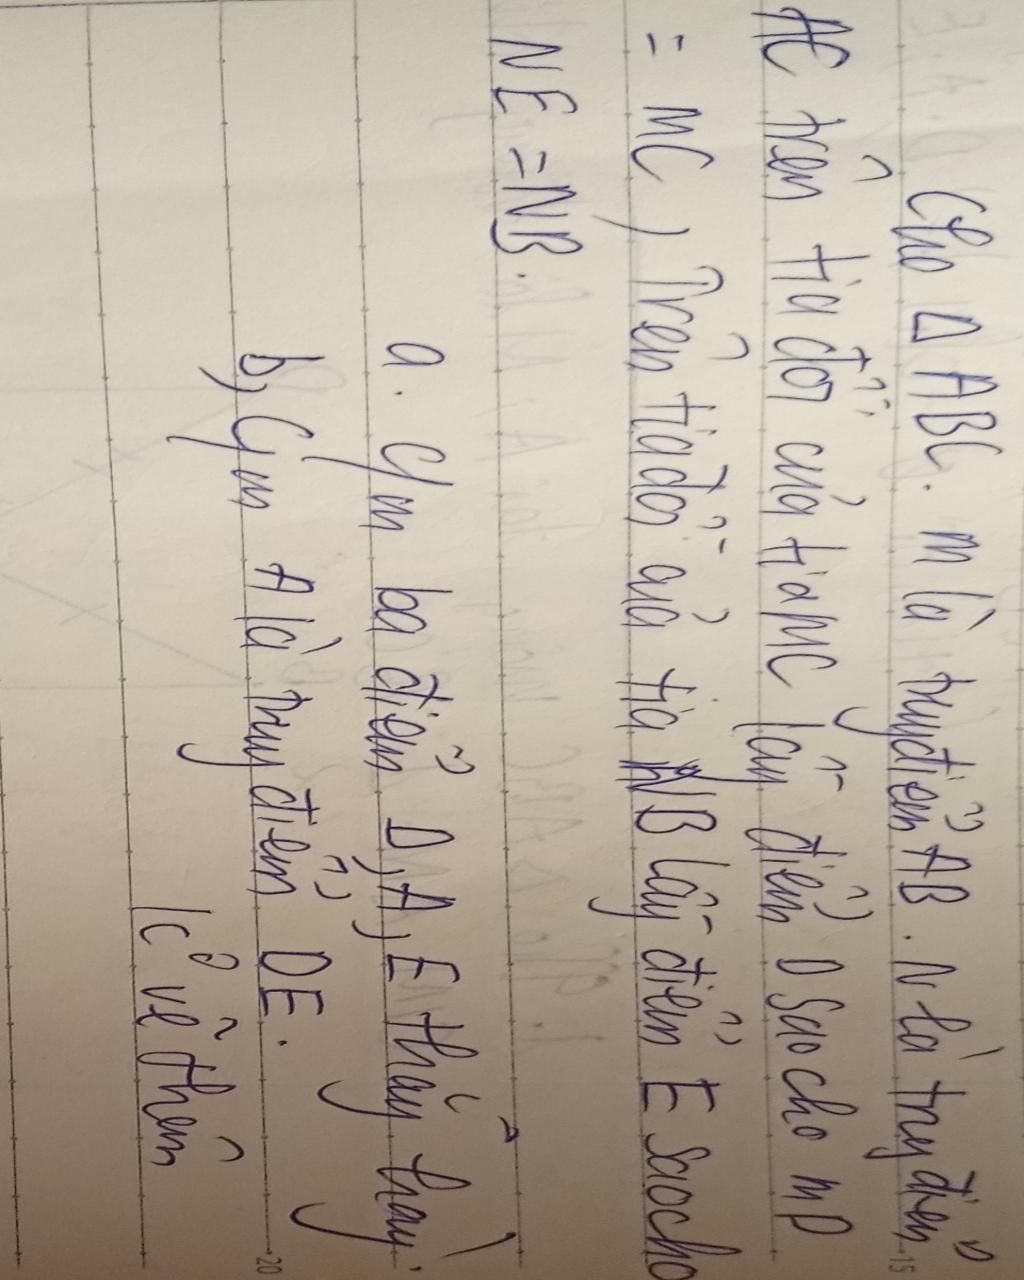 Cho Δ ABC. m là trung điểm AB. N là trung điểm
AC trên tia đối của tia MC lấy điểm D sao cho mD
= mC, Trên tia đối của tia NB lấy điểm E sao cho
NE = NB.
a. C/m ba điểm D, A, E thẳng hàng.
b, C/m A là trung điểm DE.
kc vẽ thêm
15
20